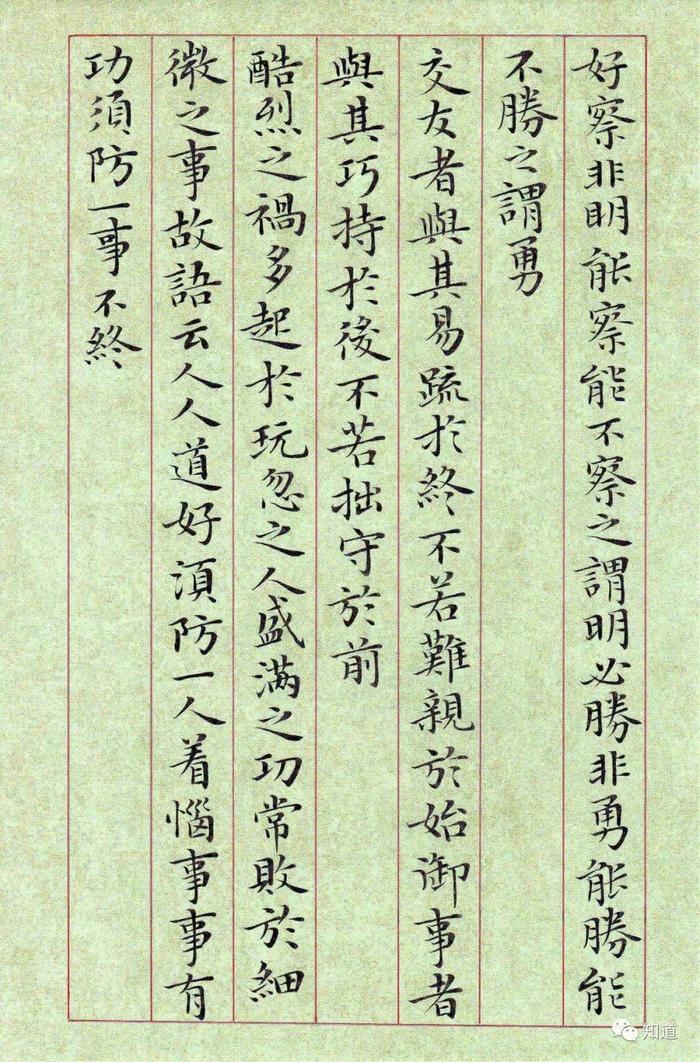 好察非明能察能不察之謂明必勝非勇能勝能
不勝之謂勇
交友者與其易疏於終不若難親於始御事者
與其巧持於後不若拙守於前
酷烈之禍多起於玩忽之人盛滿之功常敗於細
微之事故語云人人道好須防一人着惱事事有
功須防一事不終
知道